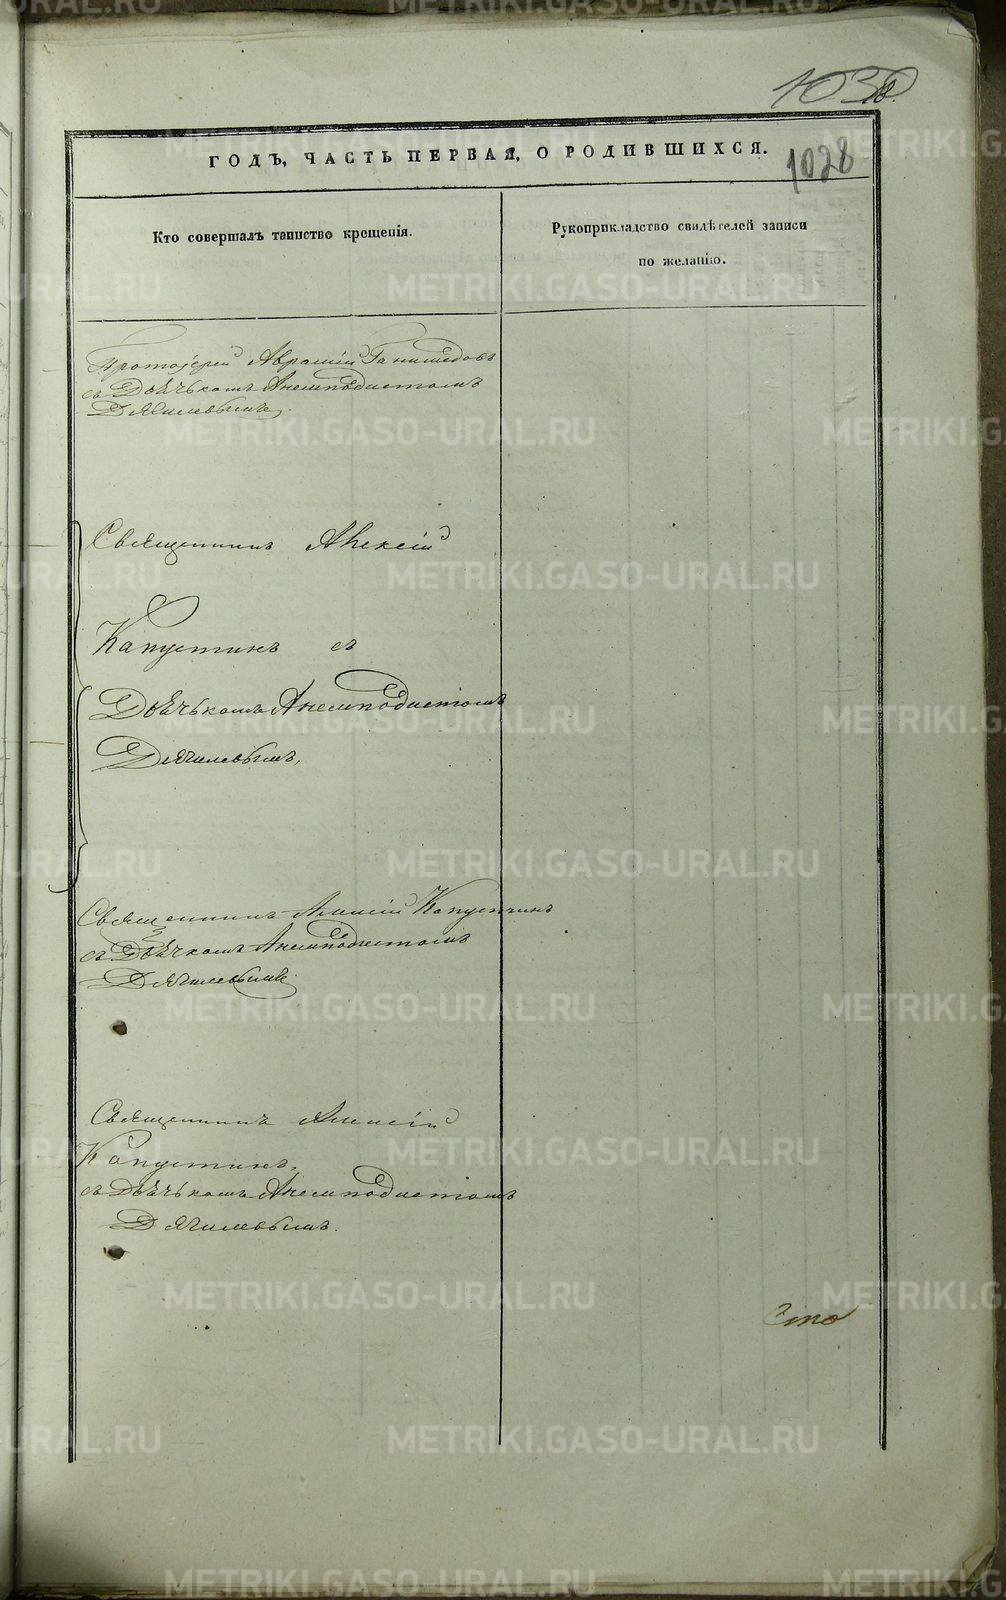 1030
1028
ГОДЪ, ЧАСТЬ ПЕРВАЯ, О РОДИВШИХСЯ.
Кто совершалъ таинство крещенія.
Рукоприкладство свидѣтелей записи
по желанію.
Протоіерей Аврамій
съ Дьячькомъ Анемподистомъ
Дягилевымъ.
Священникъ Алексій
Капустинъ съ
Дьячькомъ Анемподистомъ
Дягилевымъ,
Священникъ Алексій Капустинъ
съ Дьячкомъ Анемподистомъ
Дягилевымъ.
Священникъ Алексій
Капустинъ,
съ Дьячькомъ Анемподистомъ
Дягилевымъ.
METRIKI.GASO-URAL.RU